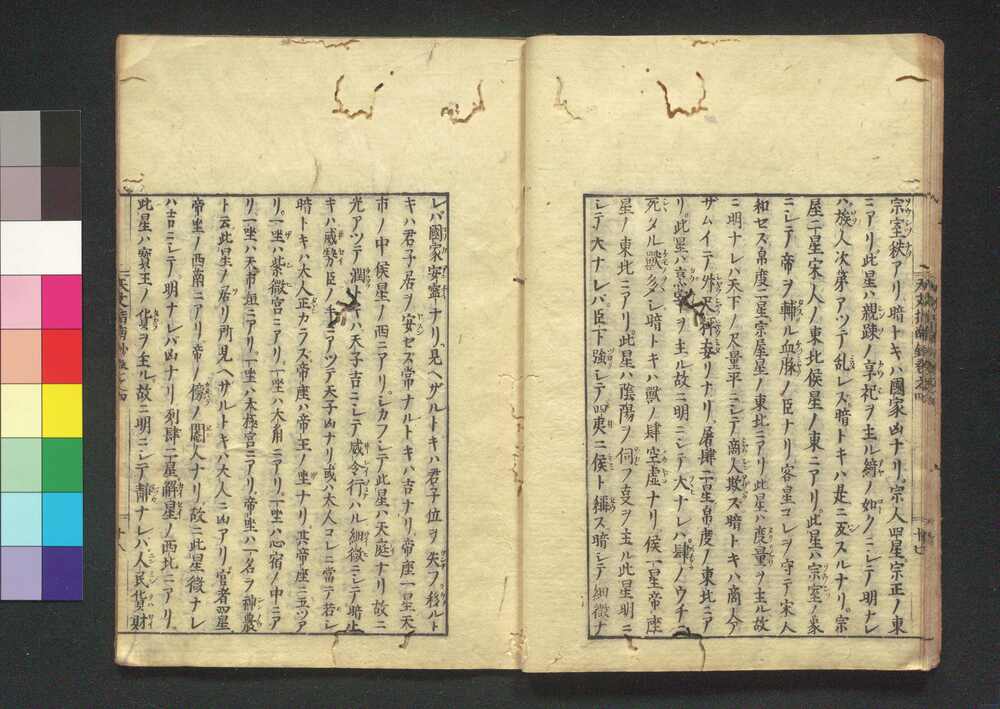 宗室秩アリ。暗トキハ國家凶ナリ。宗人四星宗正ノ東
ニアリ此星ハ親疎ノ享祀ヲ主ル綺ノ如クニシテ明ナレ
ハ族人次第アツテ乱レス暗トキハ是ニ反スルナリ。宗
屋二星宋人ノ東北侯星ノ東ニアリ。此星ハ宗室ノ象
ニシテ帝ヲ輔ル血脉ノ臣ナリ客星コレヲ守テ宋人
和セス帛度二星宗屋星ノ東北ニアリ此星ハ度量ヲ主ル故
ニ明ナレハ天下ノ尺量平ニシテ商人欺ス暗トキハ商人今
ザムイテ升尺神妄リナリ。屠肆二星帛度ノ東北ニア
リ。此星ハ烹宰ヲ主ル故ニ明ニシテ大ナレハ肆ノウチニ
死タル獣多シ暗トキハ獣ノ肆空虚ナリ。侯一星帝座
星ノ東北ニアリ。此星ハ陰陽ヲ伺フ㕝ヲ主ル此星明ニ
シテ大ナレバ臣下強シテ四夷ニ侯ト稱ス暗シテ細微ナ
十七
レバ國家安寧ナリ。見ヘザルトキハ君子位ヲ失フ移ルト
キハ君子居ヲ安セス常ナルトキハ吉ナリ。帝座一星天
市ノ中侯星ノ西ニアリ。シカフシテ此星ハ天庭ナリ故ニ
光アツテ潤トキハ天子吉ニシテ威令行ハル細微ニシテ暗
キハ威勢臣ノ手ニアツテ天子凶ナリ或ハ大人コレニ當テ若シ
暗トキハ大人正カラス帝座ハ帝王ノ坐ナリ。其帝座ニ五ツア
リ。一坐ハ紫微宮ニアリ一坐ハ大角ニアリ。一坐ハ心宿ノ中ニア
リ。一坐ハ天市垣ニアリ。一坐ハ太微宮ニアリ。帝坐ハ一名ヲ神農
ト云此星ノ居リ所見ヘサルトキハ大人ニ凶アリ。宦者四星
帝坐ノ西南ニアリ帝ノ傍ノ閹人ナリ。故ニ此星微ナレ
ハ吉ニシテ明ナレバ凶ナリ列肆二星斛星ノ西北ニアリ。
此星ハ寳玉ノ貨ヲ主ル故ニ明ニシテ靜ナレバ人民貨財
十八